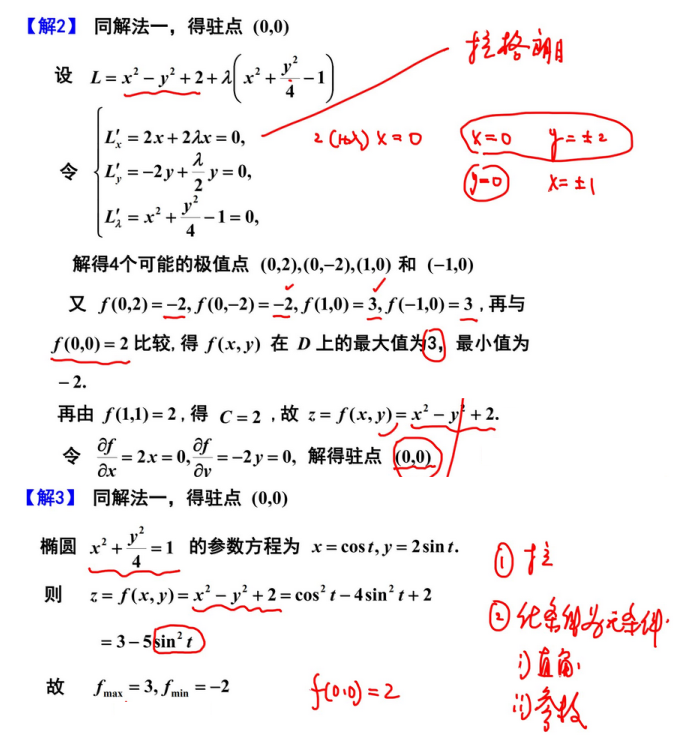 【解2】 同解法一，得驻点 (0,0)
拉格朗日
设 L = x² − y² + 2 + λ(x² + y²/4 − 1)
令 { L′ₓ = 2x + 2λx = 0,
L′y = −2y + λ/2 y = 0,
L′λ = x² + y²/4 − 1 = 0,
2(1+λ)x = 0
x=0 y=±2
y=0 x=±1
解得4个可能的极值点 (0,2),(0,−2),(1,0) 和 (−1,0)
又 f(0,2) = −2, f(0,−2) = −2, f(1,0) = 3, f(−1,0) = 3 , 再与
f(0,0) = 2 比较, 得 f(x,y) 在 D 上的最大值为3, 最小值为
−2.
再由 f(1,1) = 2 , 得 C = 2 , 故 z = f(x,y) = x² − y² + 2.
令 ∂f/∂x = 2x = 0, ∂f/∂v = −2y = 0, 解得驻点 (0,0)
【解3】 同解法一，得驻点 (0,0)
椭圆 x² + y²/4 = 1 的参数方程为 x = cos t, y = 2 sin t.
则 z = f(x,y) = x² − y² + 2 = cos² t − 4 sin² t + 2
= 3 − 5 sin² t
故 fmax = 3, fmin = −2
f(0,0) = 2
① 拉
② 化条件为无条件.
i) 直角.
ii) 参数